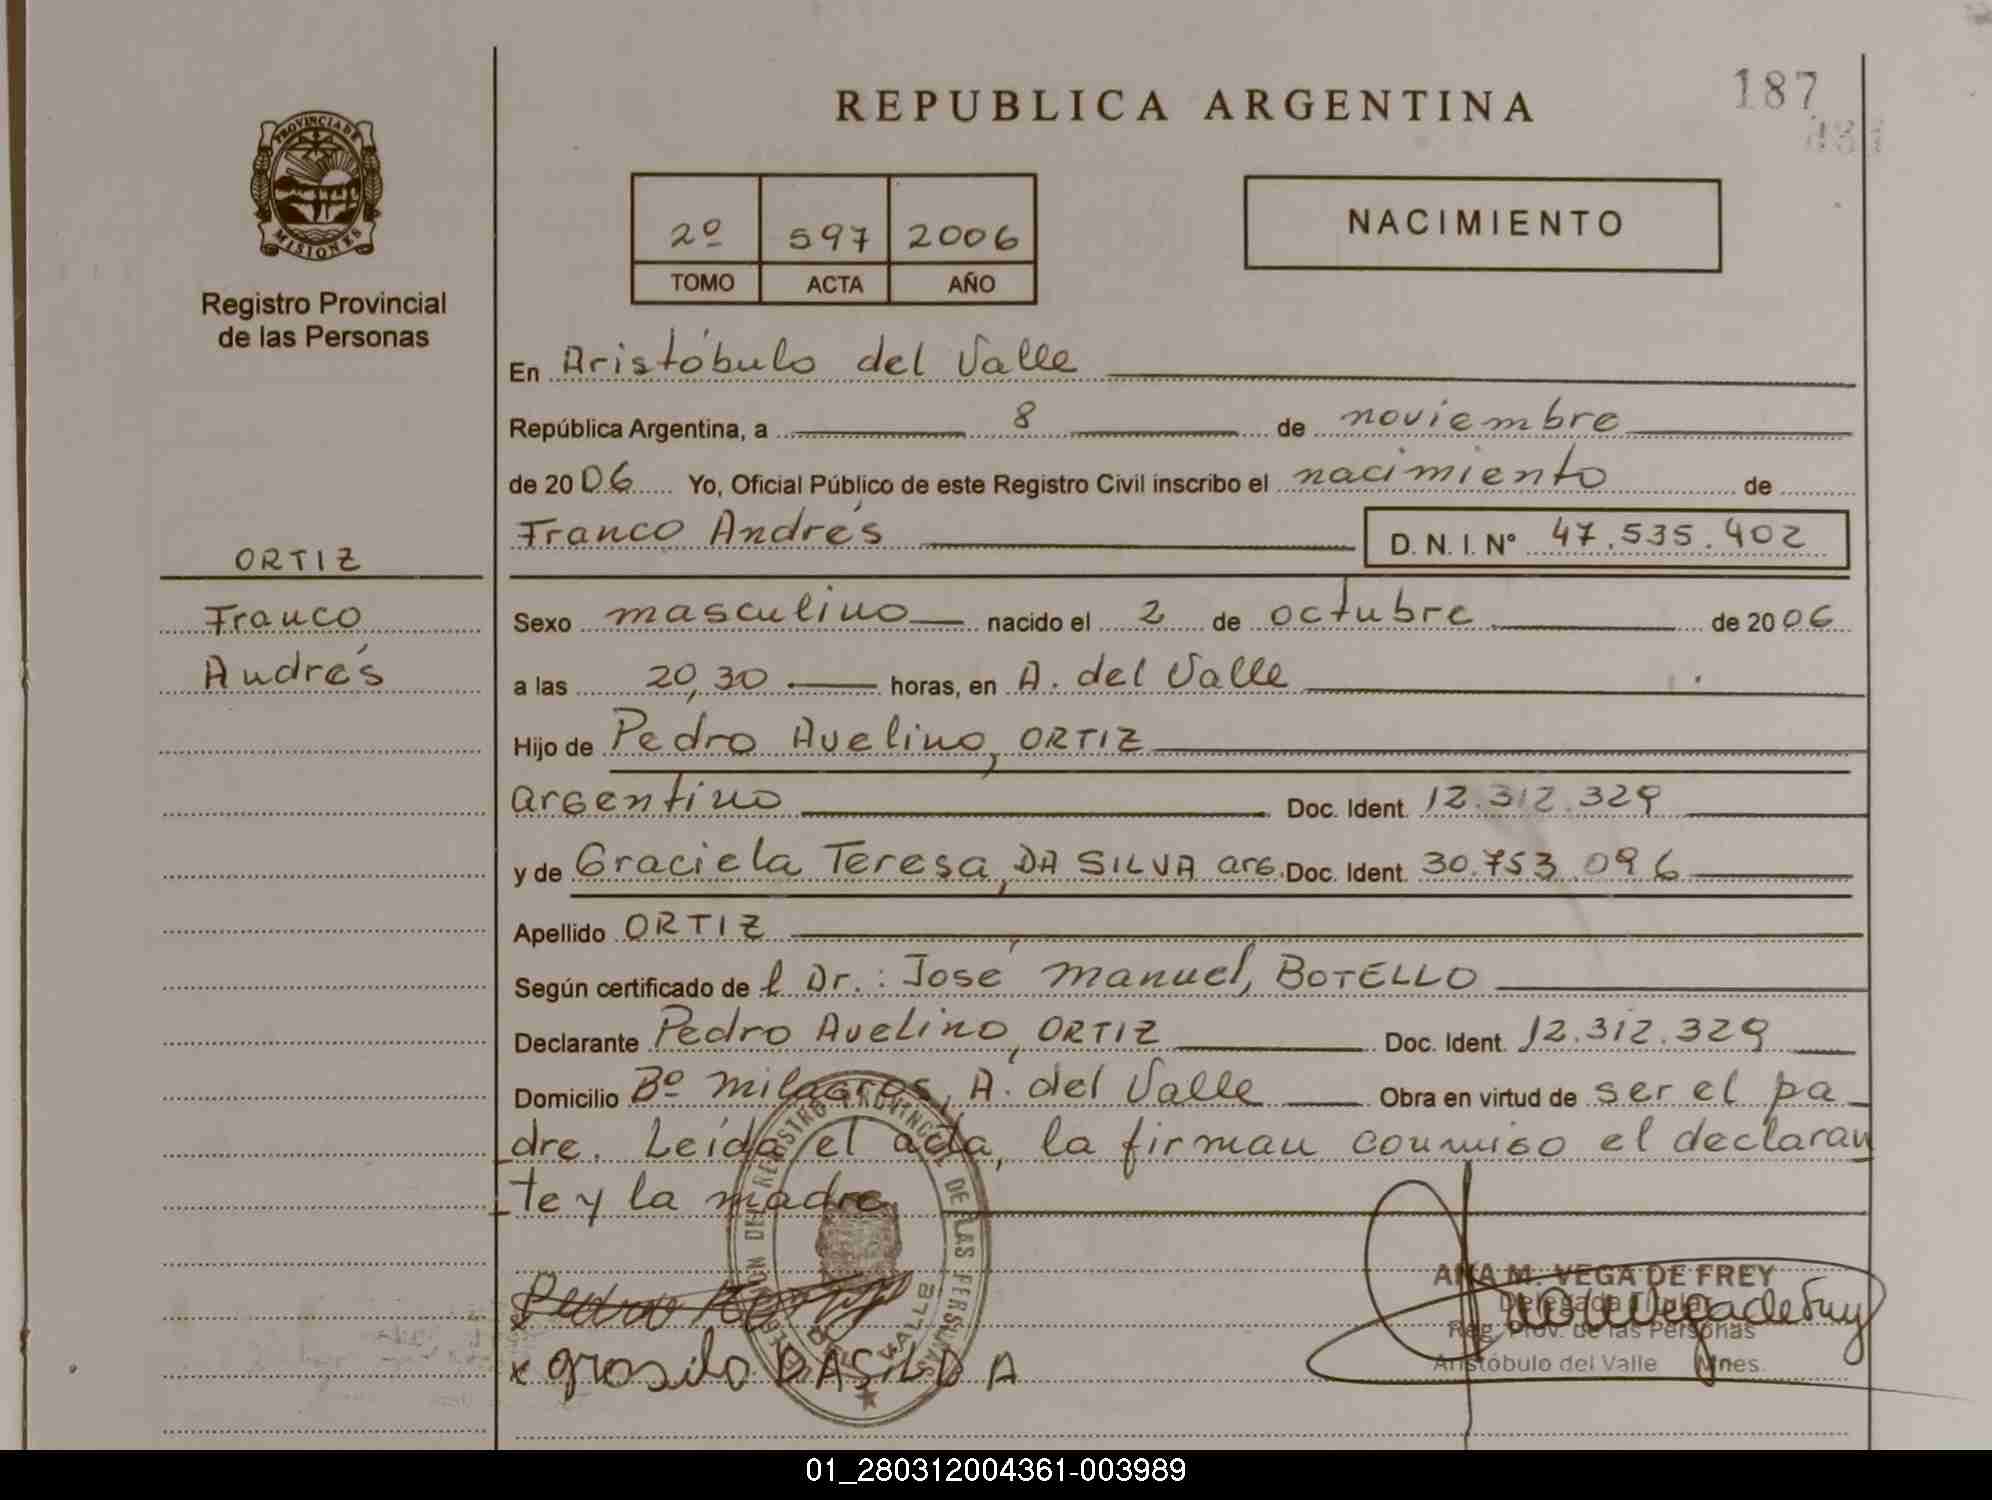 187
REPUBLICA ARGENTINA
PROVINCIA DE
MISIONES
Registro Provincial
de las Personas
2º 597 2006
TOMO ACTA AÑO
NACIMIENTO
En Aristóbulo del Valle
República Argentina, a 8 de noviembre
de 2006 Yo, Oficial Público de este Registro Civil inscribo el nacimiento de
Franco Andrés D. N. I. Nº 47.535.402
ORTIZ
Franco
Andrés
Sexo masculino nacido el 2 de octubre de 2006
a las 20,30 horas, en A. del Valle
Hijo de Pedro Avelino, ORTIZ
argentino Doc. Ident. 12.312.329
y de Graciela Teresa, DA SILVA arg. Doc. Ident. 30.753.096
Apellido ORTIZ
Según certificado de l Dr.: José Manuel, BOTELLO
Declarante Pedro Avelino, ORTIZ Doc. Ident. 12.312.329
Domicilio Bº Milagros, A. del Valle Obra en virtud de ser el pa_
_dre. Leída el acta, la firman conmigo el declaran_
_te y la madre
DELEGACION DEL REGISTRO PROVINCIAL DE LAS PERSONAS
DEL VALLE
Pedro
x DASILDA
ANA M. VEGA DE FREY
Delegada Titular
Reg. Prov. de las Personas
Aristóbulo del Valle Mnes.
01_280312004361-003989